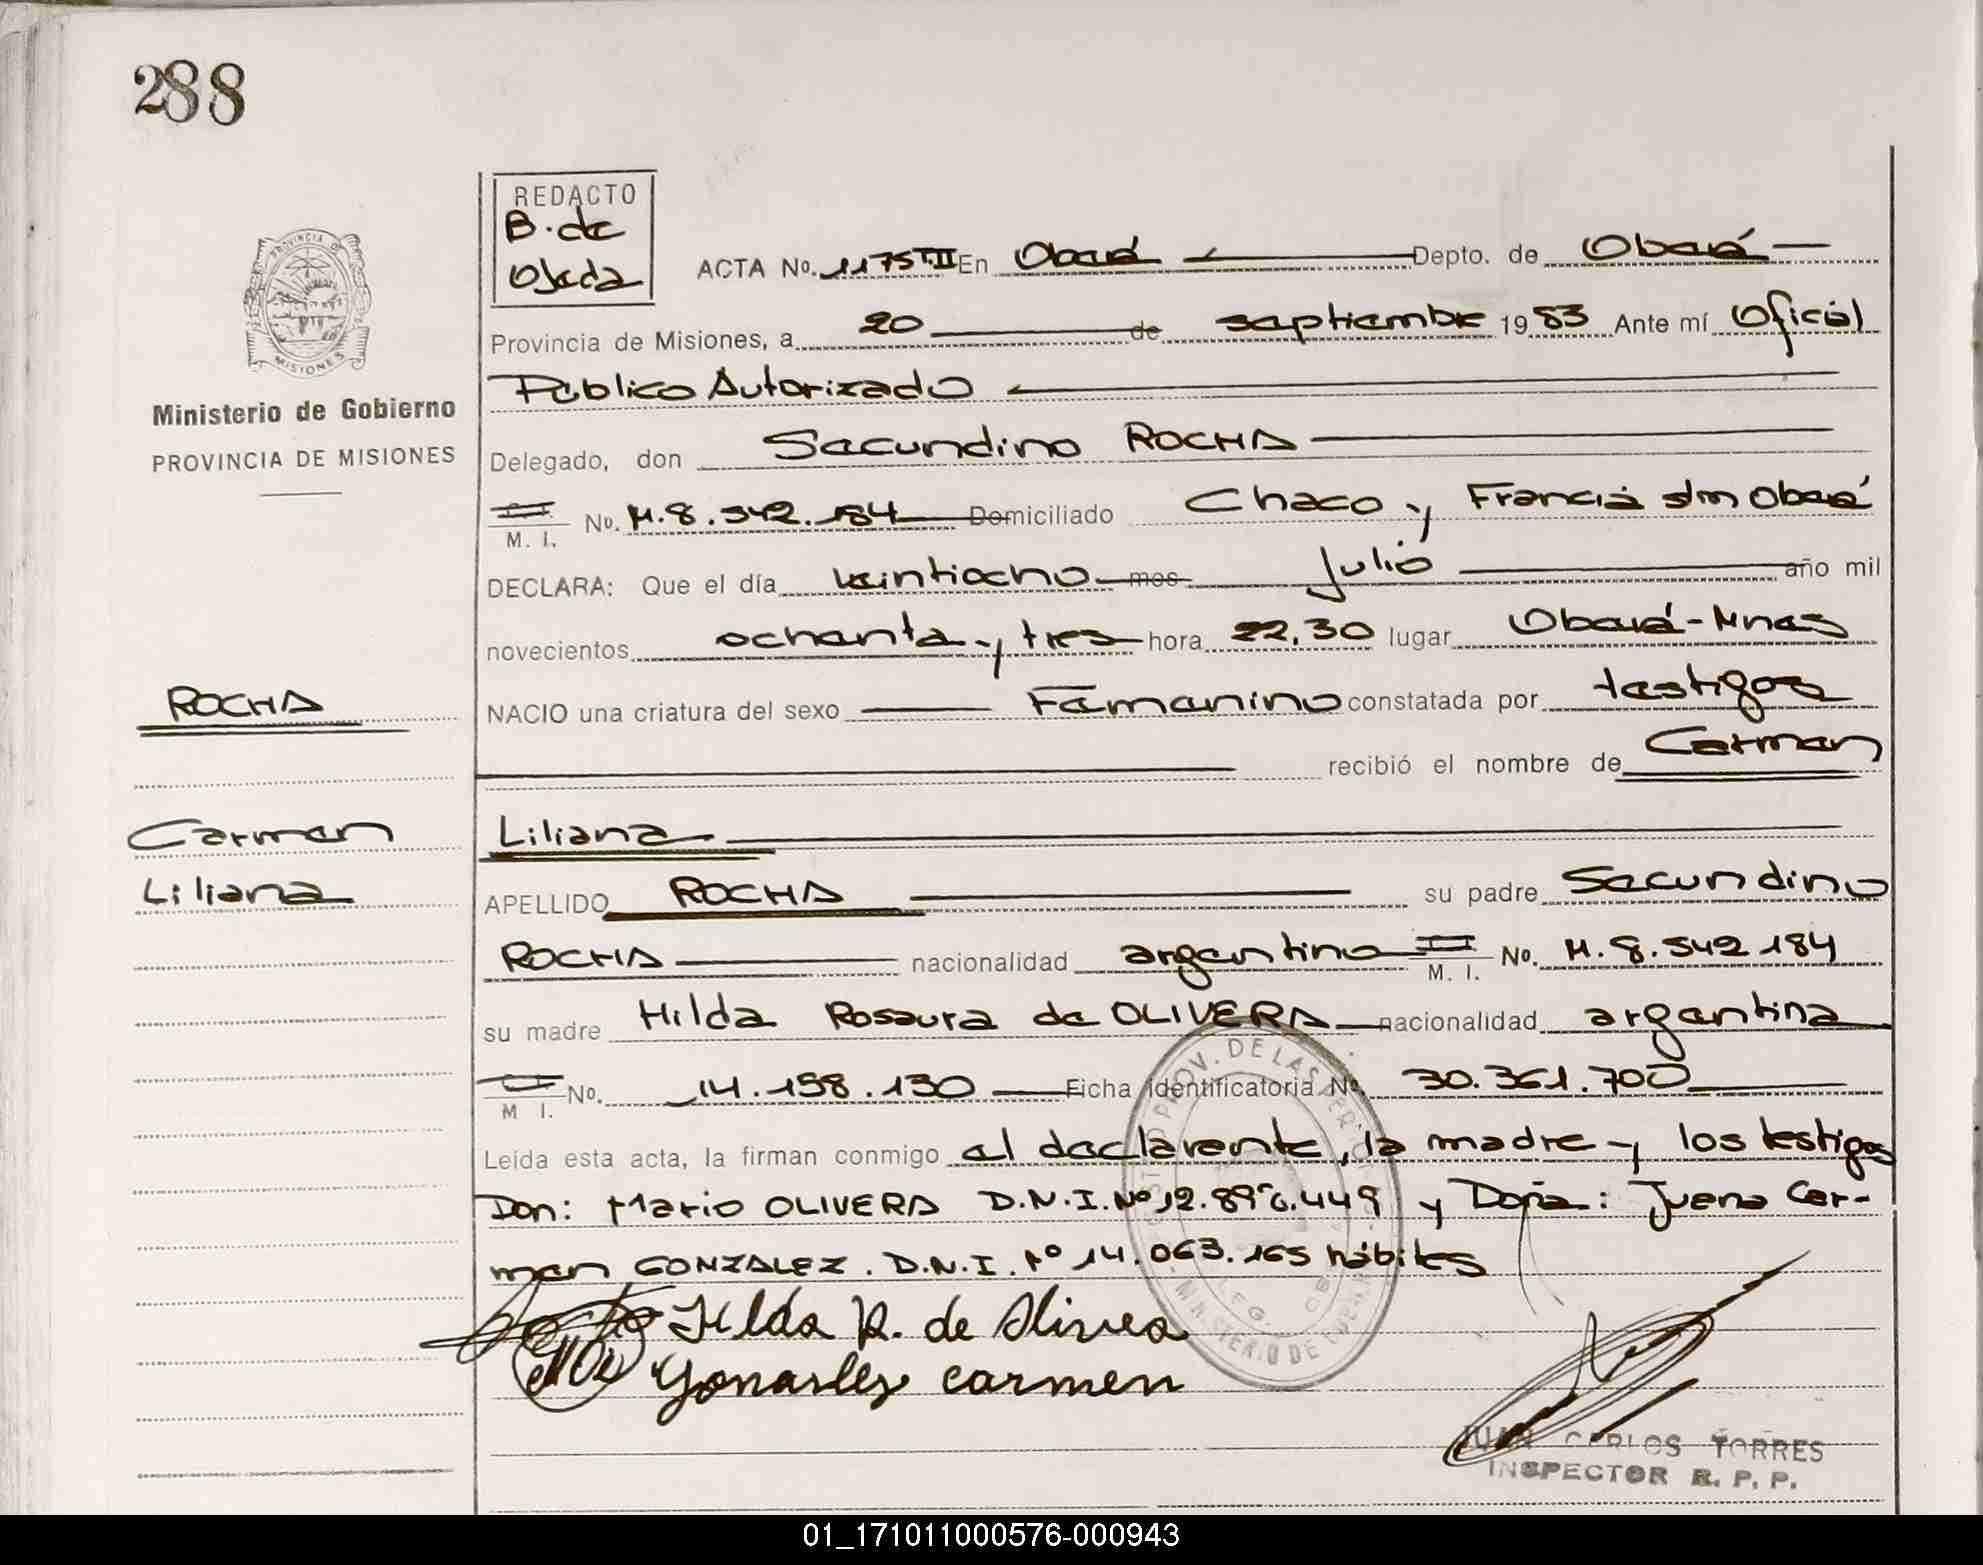 288
REDACTO
B. de
Ojeda
ACTA No. 1175 T.II En Oberá Depto. de Oberá
Provincia de Misiones, a 20 de septiembre 1983 Ante mí Oficial
Público Autorizado
PROVINCIA DE
MISIONES
Ministerio de Gobierno
PROVINCIA DE MISIONES
Delegado, don Secundino ROCHA
M. I. No. M.8.542.184 Domiciliado Chaco y Francia s/n Oberá
DECLARA: Que el día veintiocho mes Julio año mil
novecientos ochenta y tres hora 22.30 lugar Oberá-Mnes
ROCHA
NACIO una criatura del sexo Femenino constatada por testigos
recibió el nombre de Carmen
Carmen
Liliana
Liliana
APELLIDO ROCHA su padre Secundino
ROCHA nacionalidad argentino M. I. No. M.8.542.184
su madre Hilda Rosaura de OLIVERA nacionalidad argentina
M I. No. 14.198.130 Ficha identificatoria No. 30.361.700
Leída esta acta, la firman conmigo el declarente, la madre y los testigos
Don: Mario OLIVERA D.N.I. Nº 12.896.449 y Doña: Juana Car-
men GONZALEZ. D.N.I. Nº 14.063.165 hábiles
Hilda R. de Olivera
Gonasles carmen
PROV. DE LAS PER
MINISTERIO DE GOBIERNO
JUAN CARLOS TORRES
INSPECTOR R. P. P.
01_171011000576-000943